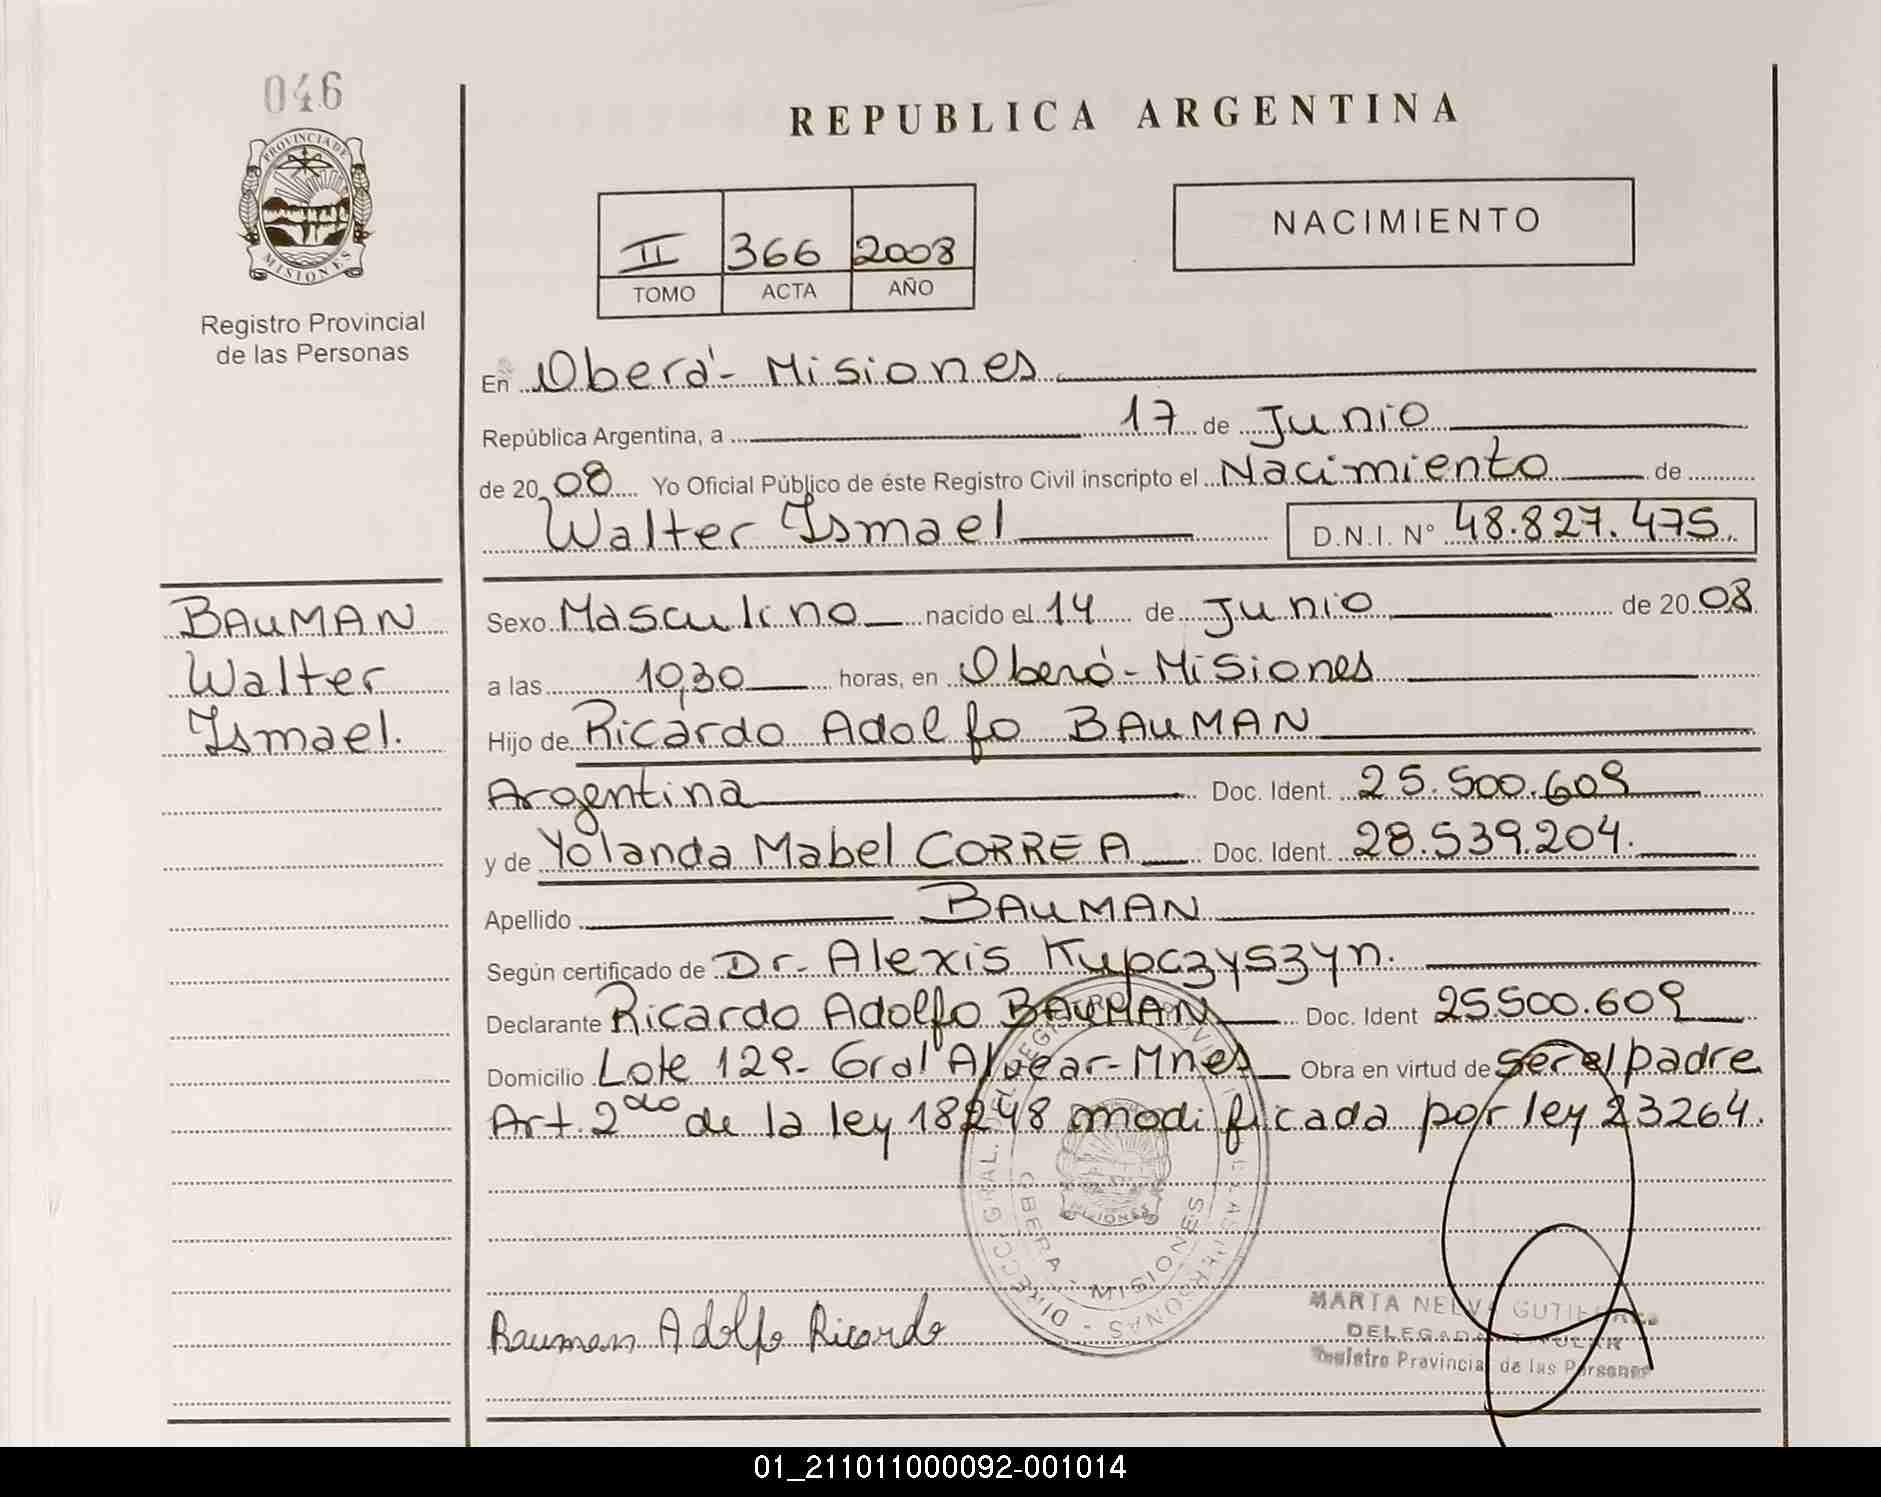 046
PROVINCIA DE
MISIONES
Registro Provincial
de las Personas
REPUBLICA ARGENTINA
II 366 2008
TOMO ACTA AÑO
NACIMIENTO
En Oberá - Misiones
República Argentina, a 17 de Junio
de 2008 Yo Oficial Público de éste Registro Civil inscripto el Nacimiento de
Walter Ismael D.N.I. Nº 48.827.475.
BAUMAN
Walter
Ismael.
Sexo Masculino nacido el 14 de Junio de 2008
a las 10,30 horas, en Oberá - Misiones
Hijo de Ricardo Adolfo BAUMAN
Argentina Doc. Ident. 25.500.609
y de Yolanda Mabel CORREA Doc. Ident. 28.539.204.
Apellido BAUMAN
Según certificado de Dr. Alexis Kupczyszyn.
Declarante Ricardo Adolfo BAUMAN Doc. Ident 25500.609
Domicilio Lote 129- Gral Alvear-Mnes Obra en virtud de ser el padre
Art. 2do de la ley 18248 modificada por ley 23264.
OBERA - MISIONES
MISIONES
Bauman Adolfo Ricardo
MARTA NELVA
DELEGADA TITULAR
Registro Provincial de las Personas
01_211011000092-001014